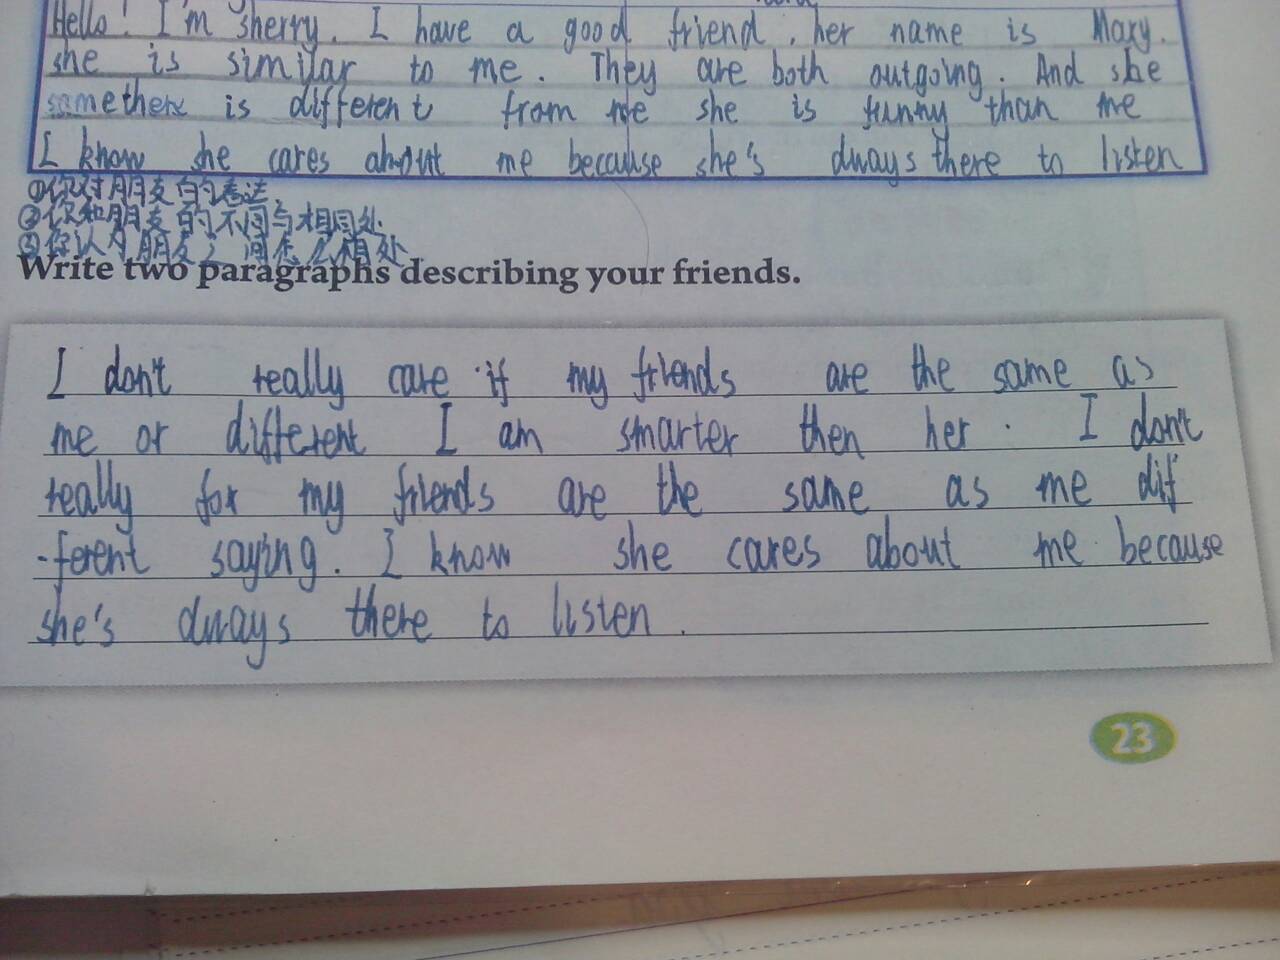 Hello! I'm sherry. I have a good friend, her name is Mary.
she is similar to me. They are both outgoing. And she
somethere is different from me she is funny than me
I know she cares about me because she's dways there to listen
①你对朋友的表达.
②你和朋友的不同与相同处
③你认为朋友之间怎么相处
Write two paragraphs describing your friends.
I don't really care if my friends are the same as
me or different I am smarter then her. I don't
really for my friends are the same as me dif
-ferent saying. I know she cares about me because
she's dways there to listen.
23